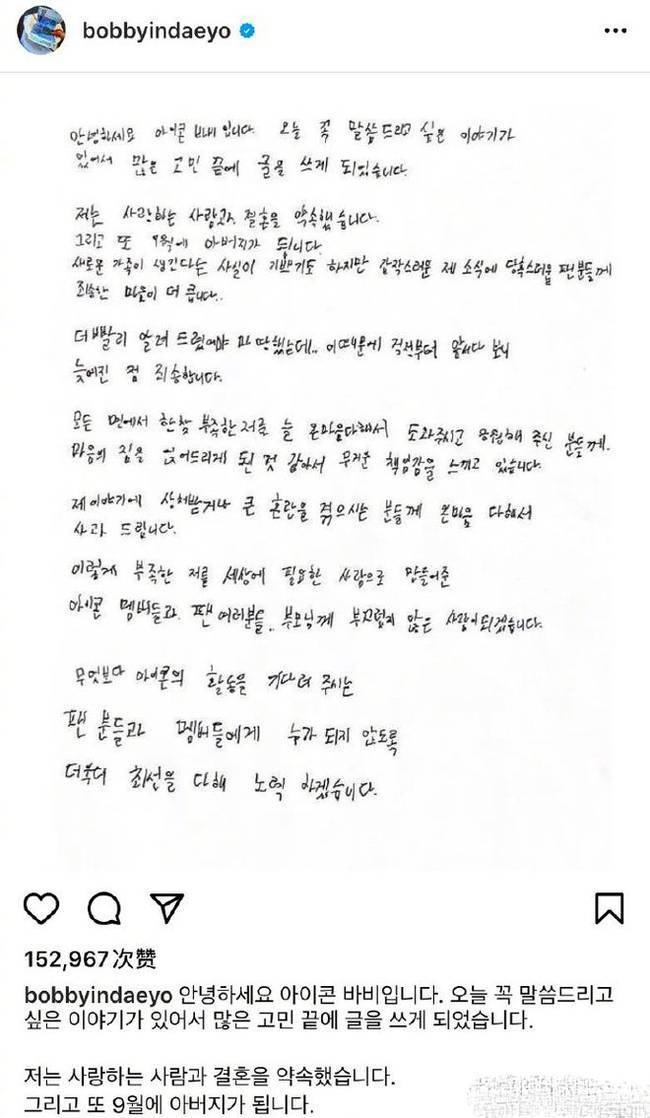 bobbyindaeyo
안녕하세요 아이콘 바비 입니다. 오늘 꼭 말씀드리고 싶은 이야기가
있어서 많은 고민 끝에 글을 쓰게 되었습니다.
저는 사랑하는 사람과 결혼을 약속했습니다.
그리고 또 9월에 아버지가 됩니다.
새로운 가족이 생긴다는 사실이 기쁘기도 하지만 갑작스러운 제 소식에 당혹스러울 팬분들께
죄송한 마음이 더 큽니다..
더 빨리 알려 드렸어야 마땅했는데.. 이 때문에 걱정부터 앞서다 보니
늦어진 점 죄송합니다.
모든 면에서 한참 부족한 저를 늘 온마음다해서 도와주시고 응원해 주신 분들께.
마음의 짐을 얹어드리게 된 것 같아서 무거운 책임감을 느끼고 있습니다.
제 이야기에 상처받거나 큰 혼란을 겪으시는 분들께 온마음 다해서
사과 드립니다.
이렇게 부족한 저를 세상에 필요한 사람으로 만들어준
아이콘 멤버들과 팬 여러분들.. 부모님께 부끄럽지 않은 사람이되겠습니다.
무엇보다 아이콘의 활동을 기다려 주시는
팬 분들과 멤버들에게 누가 되지 않도록
더욱더 최선을 다해 노력 하겠습니다.
152,967次赞
bobbyindaeyo 안녕하세요 아이콘 바비입니다. 오늘 꼭 말씀드리고
싶은 이야기가 있어서 많은 고민 끝에 글을 쓰게 되었습니다.
저는 사랑하는 사람과 결혼을 약속했습니다.
그리고 또 9월에 아버지가 됩니다.